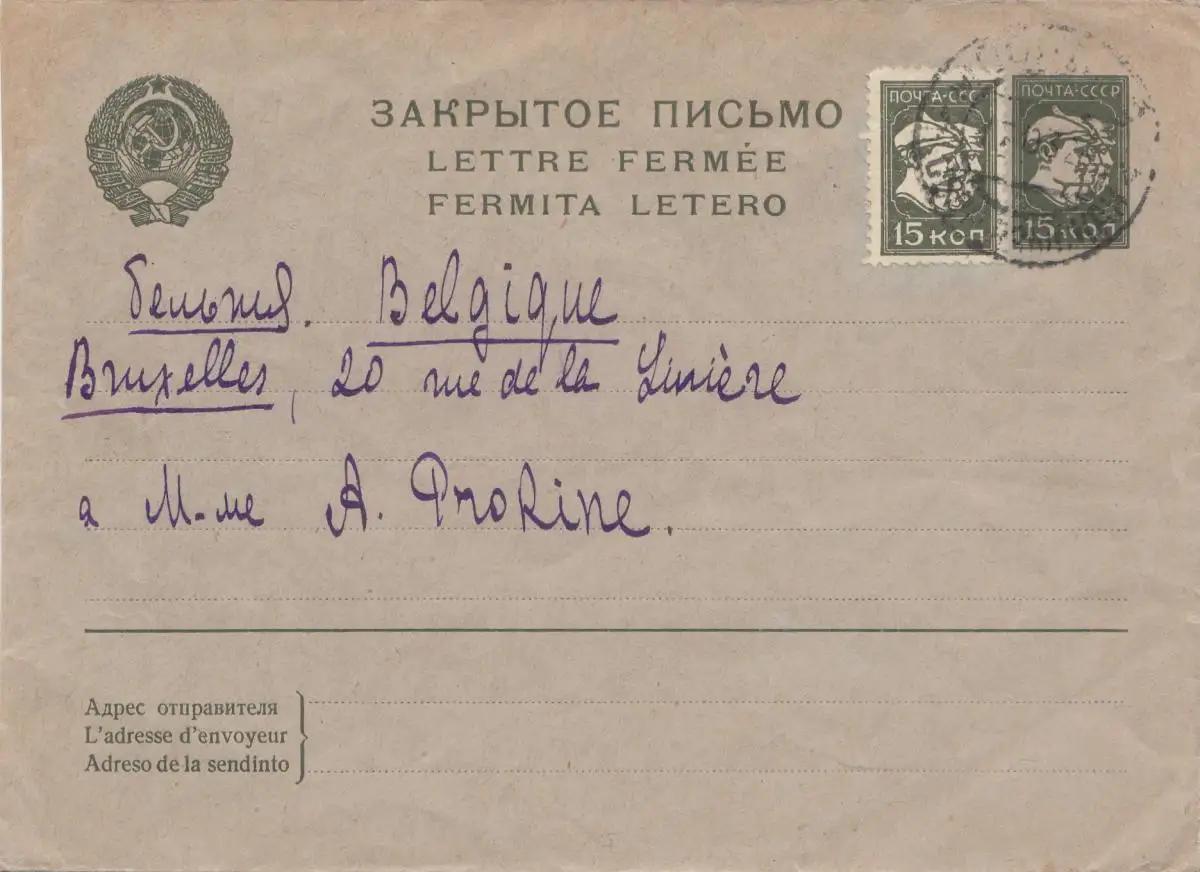 ЗАКРЫТОЕ ПИСЬМО
LETTRE FERMÉE
FERMITA LETERO
ПОЧТА-СССР
15 КОП
ПОЧТА-СССР
15 КОП
Бельгия. Belgique
Bruxelles, 20 rue de la Linière
а М-ме А. Prokine.
Адрес отправителя
L'adresse d'envoyeur
Adreso de la sendinto